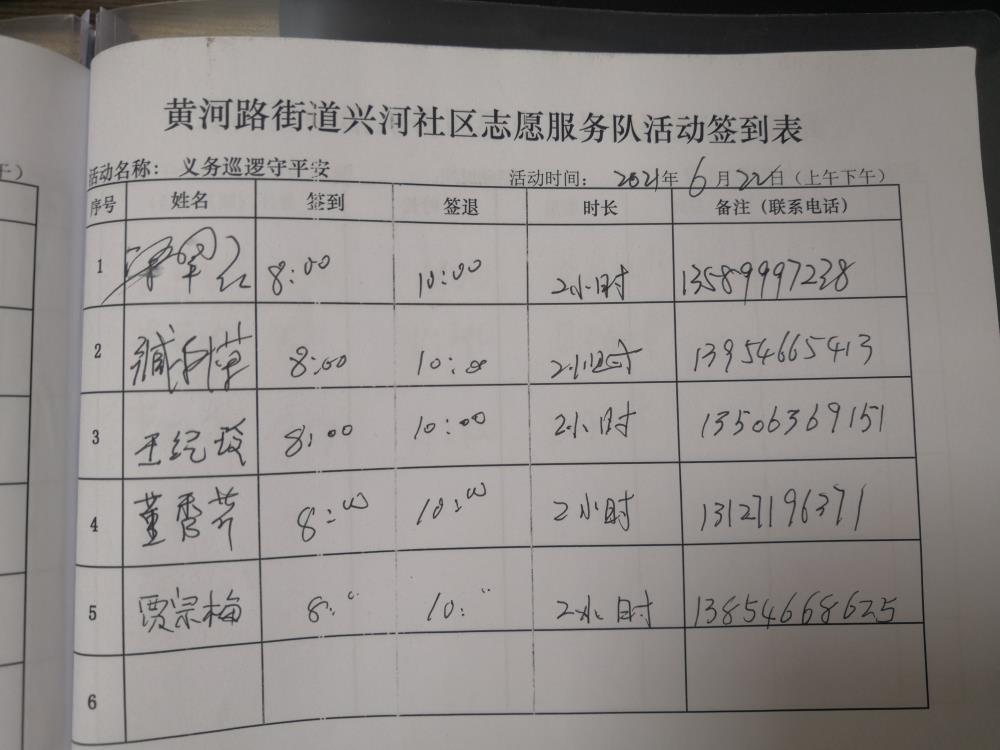 黄河路街道兴河社区志愿服务队活动签到表
活动名称： 义务巡逻守平安 活动时间： 2021年 6 月 22日（上午下午）
序号 姓名 签到 签退 时长 备注（联系电话）
1 8:00 10:00 2小时 13589997238
2 8:00 10:00 2小时 13954665413
3 王纪玲 8:00 10:00 2小时 13506369151
4 董秀芹 8:00 10:00 2小时 13127196371
5 贾宗梅 8:" 10:" 2小时 13854668625
6
午）